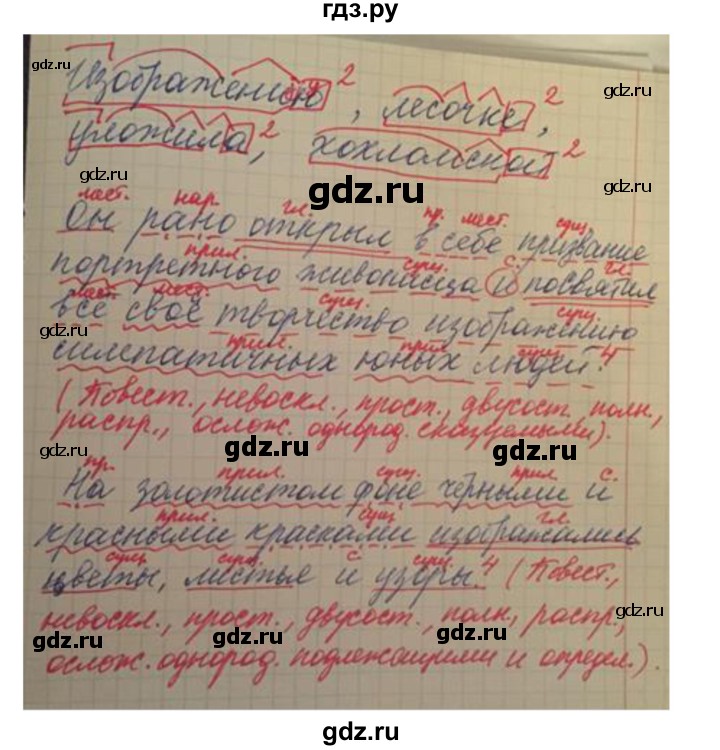 гдз.ру
gdz.ru
gdz.ru
Изображению ², лесочке ²,
gdz.ru
уложила ², хохломской ²
gdz.ru
gdz.ru
gdz.ru
мест. нар. гл. пр. мест. сущ.
Он рано открыл в себе призвание
прил. сущ. с. гл.
портретного живописца и посвятил
мест. мест. сущ. сущ.
все своё творчество изображению
gdz.ru
gdz.ru
прил. прил. сущ.
симпатичных юных людей. ⁴
(Повест., невоскл., прост., двусост., полн.,
распр., ослож. однород. сказуемыми).
gdz.ru
gdz.ru
gdz.ru
пр. прил. сущ. прил с.
На золотистом фоне чёрными и
прил. сущ. гл.
красными красками изображались
сущ. сущ. с. сущ.
цветы, листья и узоры. ⁴ (Повест.,
невоскл., прост., двусост., полн., распр.,
gdz.ru
gdz.ru
gdz.ru
ослож. однород. подлежащими и определ.).
gdz.ru